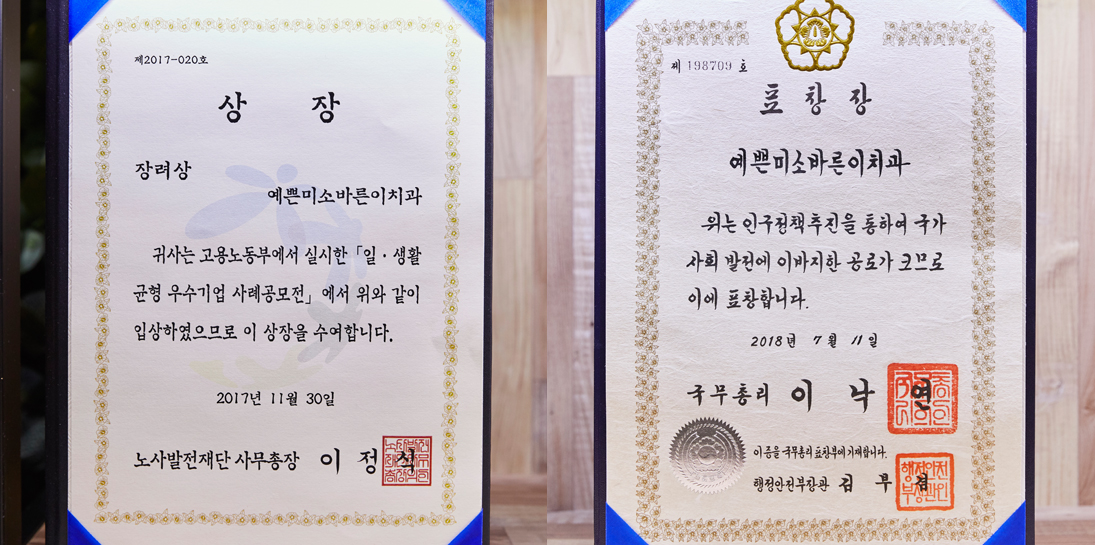 제2017-020호
상 장
장려상
예쁜미소바른이치과
귀사는 고용노동부에서 실시한 「일·생활
균형 우수기업 사례공모전」에서 위와 같이
입상하였으므로 이 상장을 수여합니다.
2017년 11월 30일
노사발전재단 사무총장 이 정 식
제 198709 호
표 창 장
예쁜미소바른이치과
위는 인구정책추진을 통하여 국가
사회 발전에 이바지한 공로가 크므로
이에 표창합니다.
2018년 7월 11일
국무총리 이 낙 연
이 증을 국무총리 표창부에 기재합니다.
행정안전부장관 김 부 겸